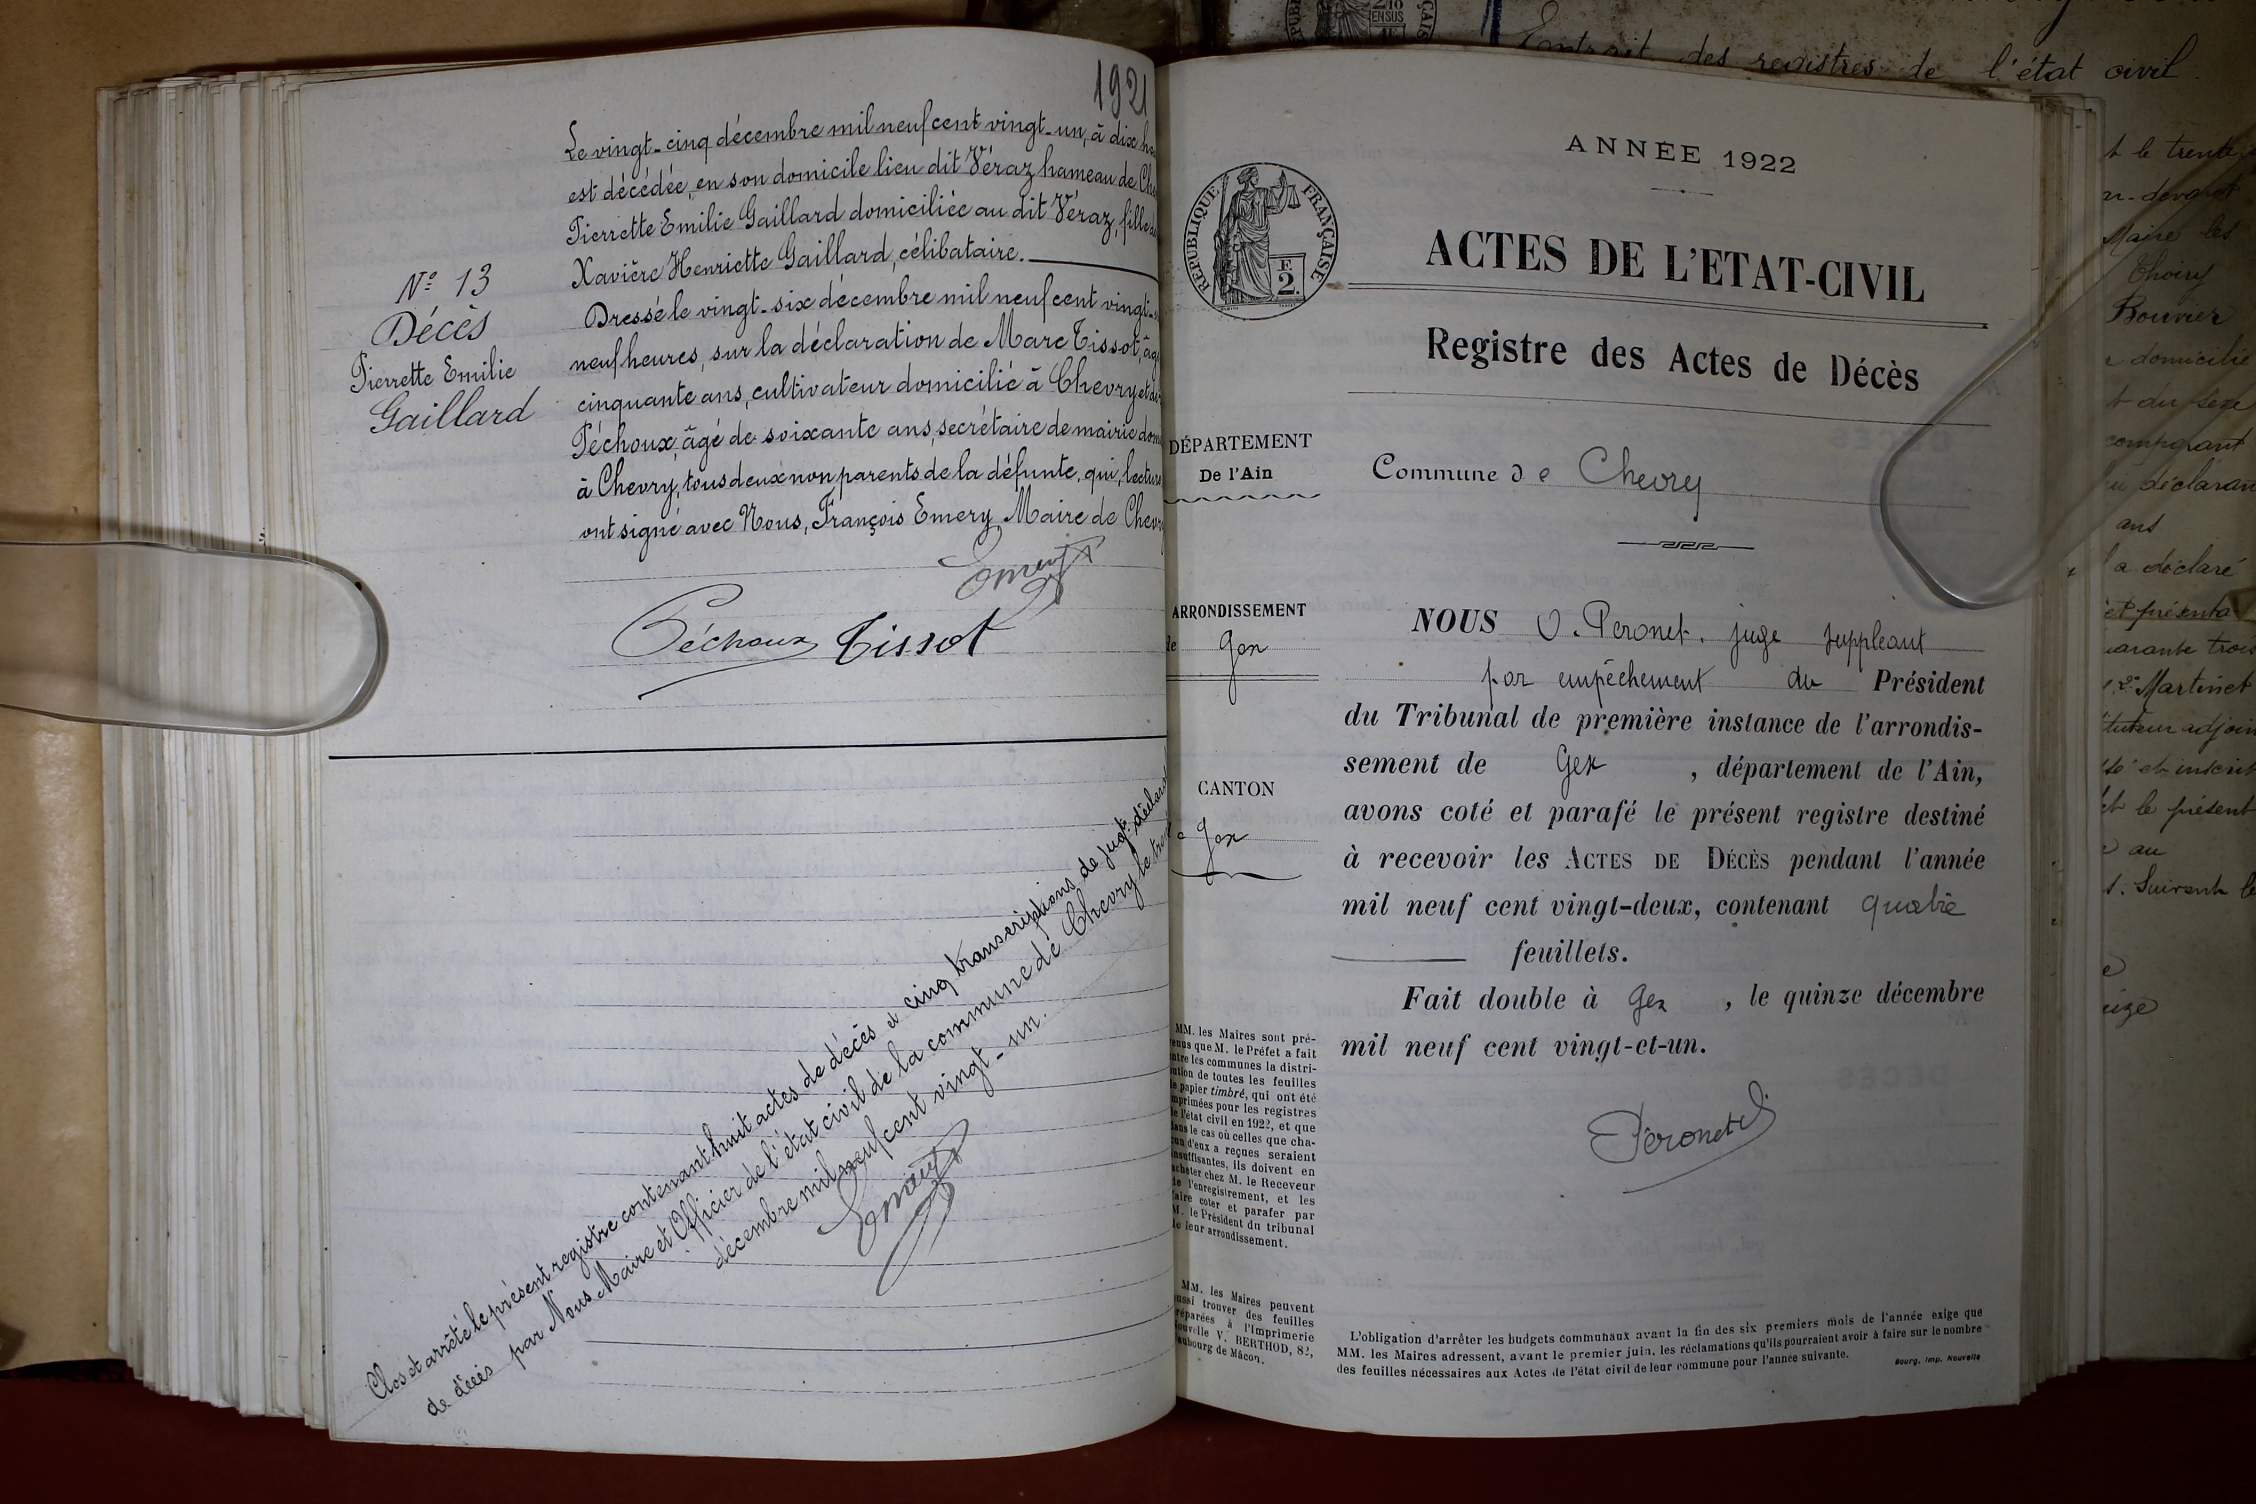 1921
Le vingt-cinq décembre mil neuf cent vingt-un, à dix
est décédée, en son domicile lieu dit Véraz hameau de
Pierrette Emilie Gaillard domiciliée au dit Véraz, fille
Xavière Henriette Gaillard, célibataire.
Nº 13
Décès
Pierrette Emilie
Gaillard
Dressé le vingt-six décembre mil neuf cent vingt-
neuf heures, sur la déclaration de Marc Tissot, âgé
cinquante ans, cultivateur domicilié à Chevry et de
Péchoux, âgé de soixante ans, secrétaire de mairie
à Chevry, tous deux non parents de la défunte, qui, lecture
ont signé avec Nous, François Emery Maire de Chevry
Emery
Péchoux Tissot
Clos et arrêté le présent registre contenant huit actes de décès et cinq transcriptions de jugt. déclarat
de décès par Nous Maire et Officier de l'état civil de la commune de Chevry le
décembre mil neuf cent vingt-un.
Emery
ANNÉE 1922
RÉPUBLIQUE FRANÇAISE
2
ACTES DE L'ETAT-CIVIL
Registre des Actes de Décès
DÉPARTEMENT
De l'Ain
Commune de Chevry
ARRONDISSEMENT
de Gex
CANTON
Gex
NOUS O. Peronet. juge suppléant
par empêchement du Président
du Tribunal de première instance de l'arrondis-
sement de Gex , département de l'Ain,
avons coté et parafé le présent registre destiné
à recevoir les ACTES DE DÉCÈS pendant l'année
mil neuf cent vingt-deux, contenant quatre
feuillets.
Fait double à Gex , le quinze décembre
mil neuf cent vingt-et-un.
Péronet
MM. les Maires sont pré-
venus que M. le Préfet a fait
entre les communes la distri-
bution de toutes les feuilles
de papier timbré, qui ont été
imprimées pour les registres
de l'état civil en 1922, et que
dans le cas où celles que cha-
cun d'eux a reçues seraient
insuffisantes, ils doivent en
acheter chez M. le Receveur
de l'enregistrement, et les
faire coter et parafer par
M. le Président du tribunal
de leur arrondissement.
MM. les Maires peuvent
aussi trouver des feuilles
préparées à l'Imprimerie
Nouvelle V. BERTHOD, 82,
faubourg de Mâcon.
L'obligation d'arrêter les budgets communaux avant la fin des six premiers mois de l'année exige que
MM. les Maires adressent, avant le premier juin, les réclamations qu'ils pourraient avoir à faire sur le nombre
des feuilles nécessaires aux Actes de l'état civil de leur commune pour l'année suivante.
Bourg, Imp. Nouvelle
Extrait des registres de l'état civil.
le trente
Maire les
Thoiry
Bouvier
domicilié
du sexe
comparant
déclarant
ans
a déclaré
et présenta
quarante trois
2º Martinet
instituteur adjoin
et inscrit
et le présent
au
Suivent le